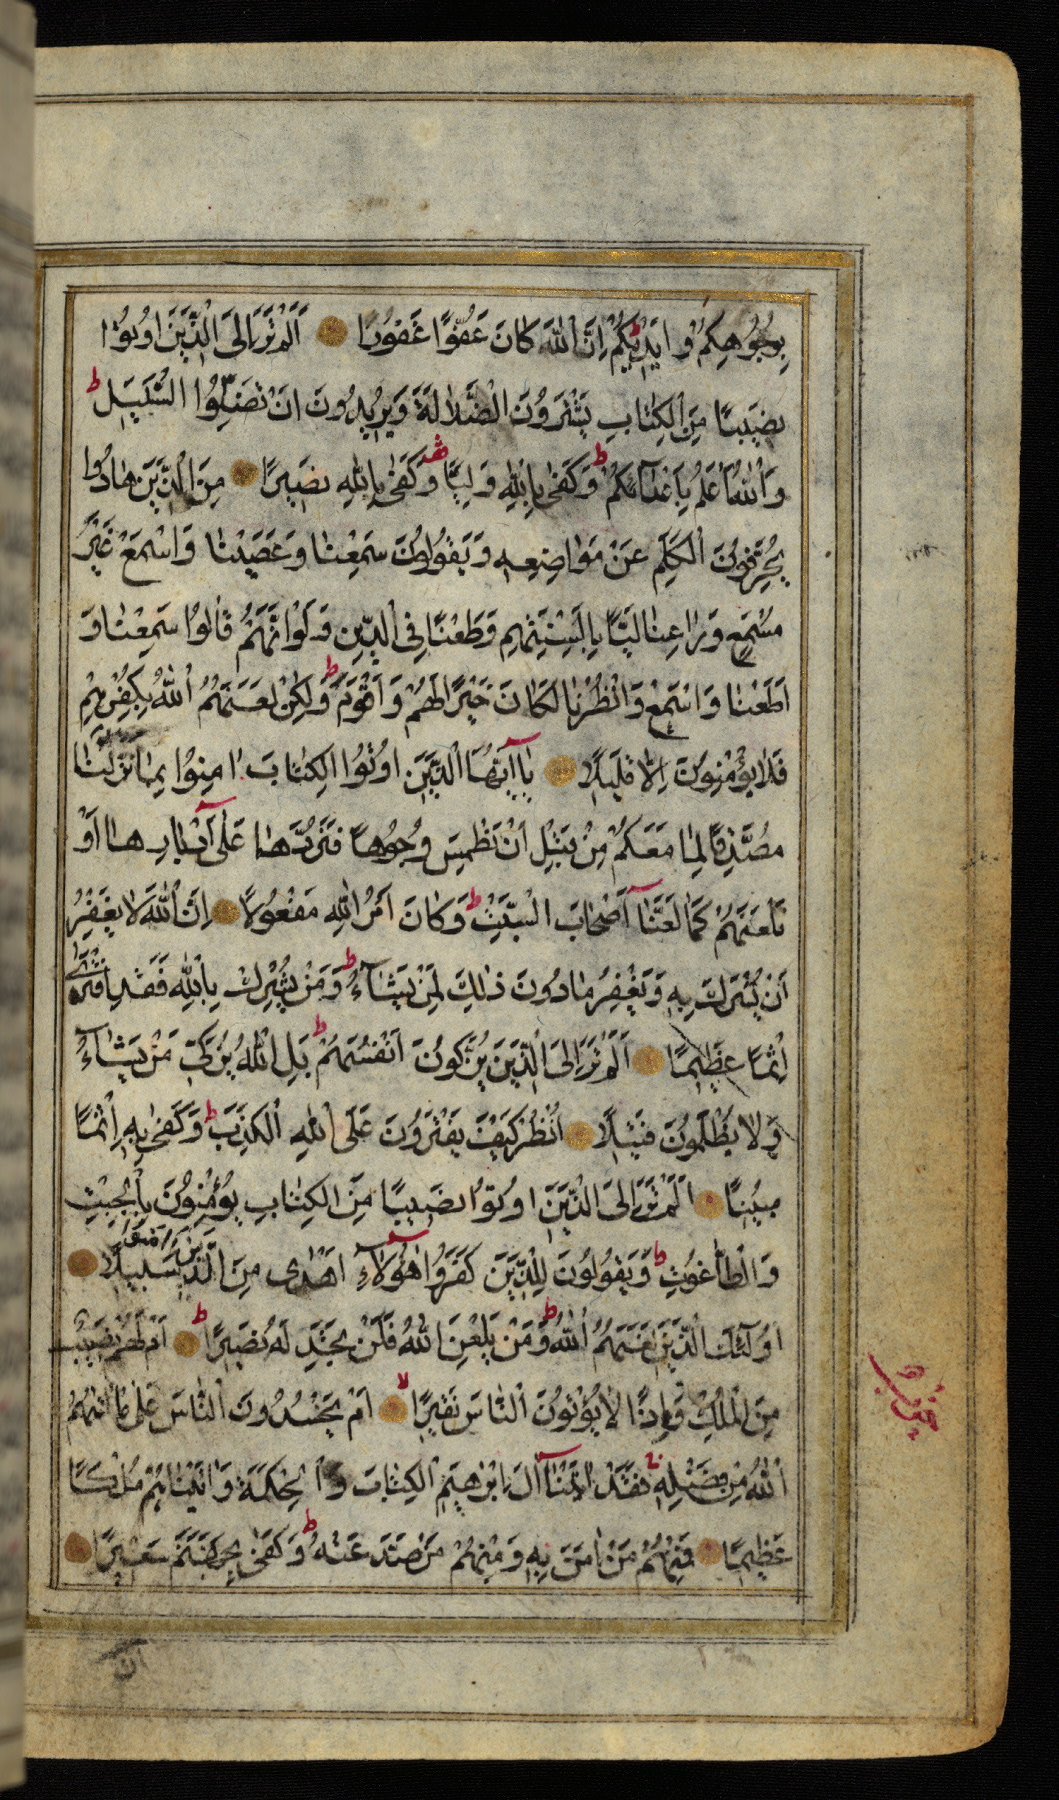 بِوُجُوهِكُمْ وَاَيْدِيكُمْ اِنَّ اللّٰهَ كَانَ عَفُوًّا غَفُورًا اَلَمْ تَرَ اِلَى الَّذِينَ اُوتُوا
نَصِيبًا مِنَ الْكِتَابِ يَشْتَرُونَ الضَّلَالَةَ وَيُرِيدُونَ اَنْ تَضِلُّوا السَّبِيلَ ط
وَاللّٰهُ اَعْلَمُ بِاَعْدَآئِكُمْ ط وَكَفٰى بِاللّٰهِ وَلِيًّا وَكَفٰى بِاللّٰهِ نَصِيرًا مِنَ الَّذِينَ هَادُوا
يُحَرِّفُونَ الْكَلِمَ عَنْ مَوَاضِعِهِ وَيَقُولُونَ سَمِعْنَا وَعَصَيْنَا وَاسْمَعْ غَيْرَ
مُسْمَعٍ وَرَاعِنَا لَيًّا بِاَلْسِنَتِهِمْ وَطَعْنًا فِى الدِّينِ وَلَوْ اَنَّهُمْ قَالُوا سَمِعْنَا وَ
اَطَعْنَا وَاسْمَعْ وَانْظُرْنَا لَكَانَ خَيْرًا لَهُمْ وَاَقْوَمَ ط وَلٰكِنْ لَعَنَهُمُ اللّٰهُ بِكُفْرِهِمْ
فَلَا يُؤْمِنُونَ اِلَّا قَلِيلًا يَآ اَيُّهَا الَّذِينَ اُوتُوا الْكِتَابَ اٰمِنُوا بِمَا نَزَّلْنَا
مُصَدِّقًا لِمَا مَعَكُمْ مِنْ قَبْلِ اَنْ نَطْمِسَ وُجُوهًا فَنَرُدَّهَا عَلٰٓى اَدْبَارِهَا اَوْ
نَلْعَنَهُمْ كَمَا لَعَنَّآ اَصْحَابَ السَّبْتِ ط وَكَانَ اَمْرُ اللّٰهِ مَفْعُولًا اِنَّ اللّٰهَ لَا يَغْفِرُ
اَنْ يُشْرَكَ بِهِ وَيَغْفِرُ مَا دُونَ ذٰلِكَ لِمَنْ يَشَآءُ ط وَمَنْ يُشْرِكْ بِاللّٰهِ فَقَدِ افْتَرٰى
اِثْمًا عَظِيمًا اَلَمْ تَرَ اِلَى الَّذِينَ يُزَكُّونَ اَنْفُسَهُمْ ط بَلِ اللّٰهُ يُزَكِّى مَنْ يَشَآءُ
وَلَا يُظْلَمُونَ فَتِيلًا اُنْظُرْ كَيْفَ يَفْتَرُونَ عَلَى اللّٰهِ الْكَذِبَ ط وَكَفٰى بِهِ اِثْمًا
مُبِينًا اَلَمْ تَرَ اِلَى الَّذِينَ اُوتُوا نَصِيبًا مِنَ الْكِتَابِ يُؤْمِنُونَ بِالْجِبْتِ
وَالطَّاغُوتِ ط وَيَقُولُونَ لِلَّذِينَ كَفَرُوا هٰٓؤُلَآءِ اَهْدٰى مِنَ الَّذِينَ اٰمَنُوا سَبِيلًا
اُولٰئِكَ الَّذِينَ لَعَنَهُمُ اللّٰهُ ط وَمَنْ يَلْعَنِ اللّٰهُ فَلَنْ تَجِدَ لَهُ نَصِيرًا ط اَمْ لَهُمْ نَصِيبٌ
مِنَ الْمُلْكِ فَاِذًا لَا يُؤْتُونَ النَّاسَ نَقِيرًا لا اَمْ يَحْسُدُونَ النَّاسَ عَلٰى مَا اٰتٰيهُمُ
اللّٰهُ مِنْ فَضْلِهِ فَقَدْ اٰتَيْنَآ اٰلَ اِبْرٰهِيمَ الْكِتَابَ وَالْحِكْمَةَ وَاٰتَيْنَاهُمْ مُلْكًا
عَظِيمًا فَمِنْهُمْ مَنْ اٰمَنَ بِهِ وَمِنْهُمْ مَنْ صَدَّ عَنْهُ ط وَكَفٰى بِجَهَنَّمَ سَعِيرًا
ان